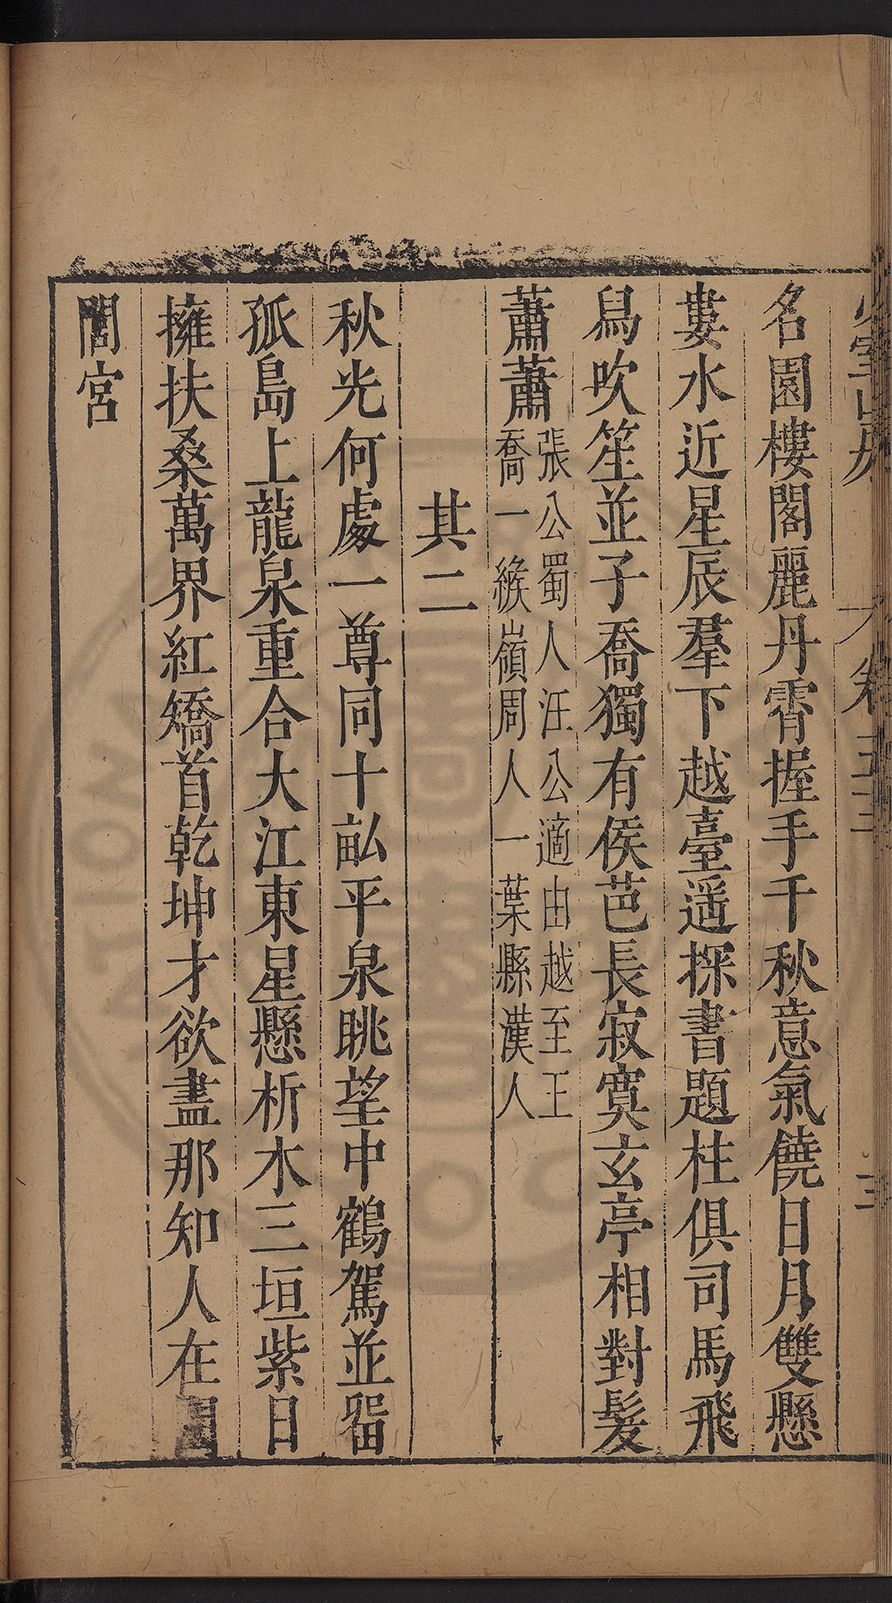 名園樓閣麗丹霄握手千秋意氣饒日月雙懸
婁水近星辰羣下越臺遥探書題柱俱司馬飛
舄吹笙並子喬獨有侯芭長寂寞玄亭相對髮
蕭蕭張公蜀人汪公適由越至王
喬一緱嶺周人一葉縣漢人
其二
秋光何處一尊同十畝平泉眺望中鶴駕並畱
孤島上龍泉重合大江東星懸析木三垣紫日
擁扶桑萬界紅矯首乾坤才欲盡那知人在
閶宮
卷五三
三